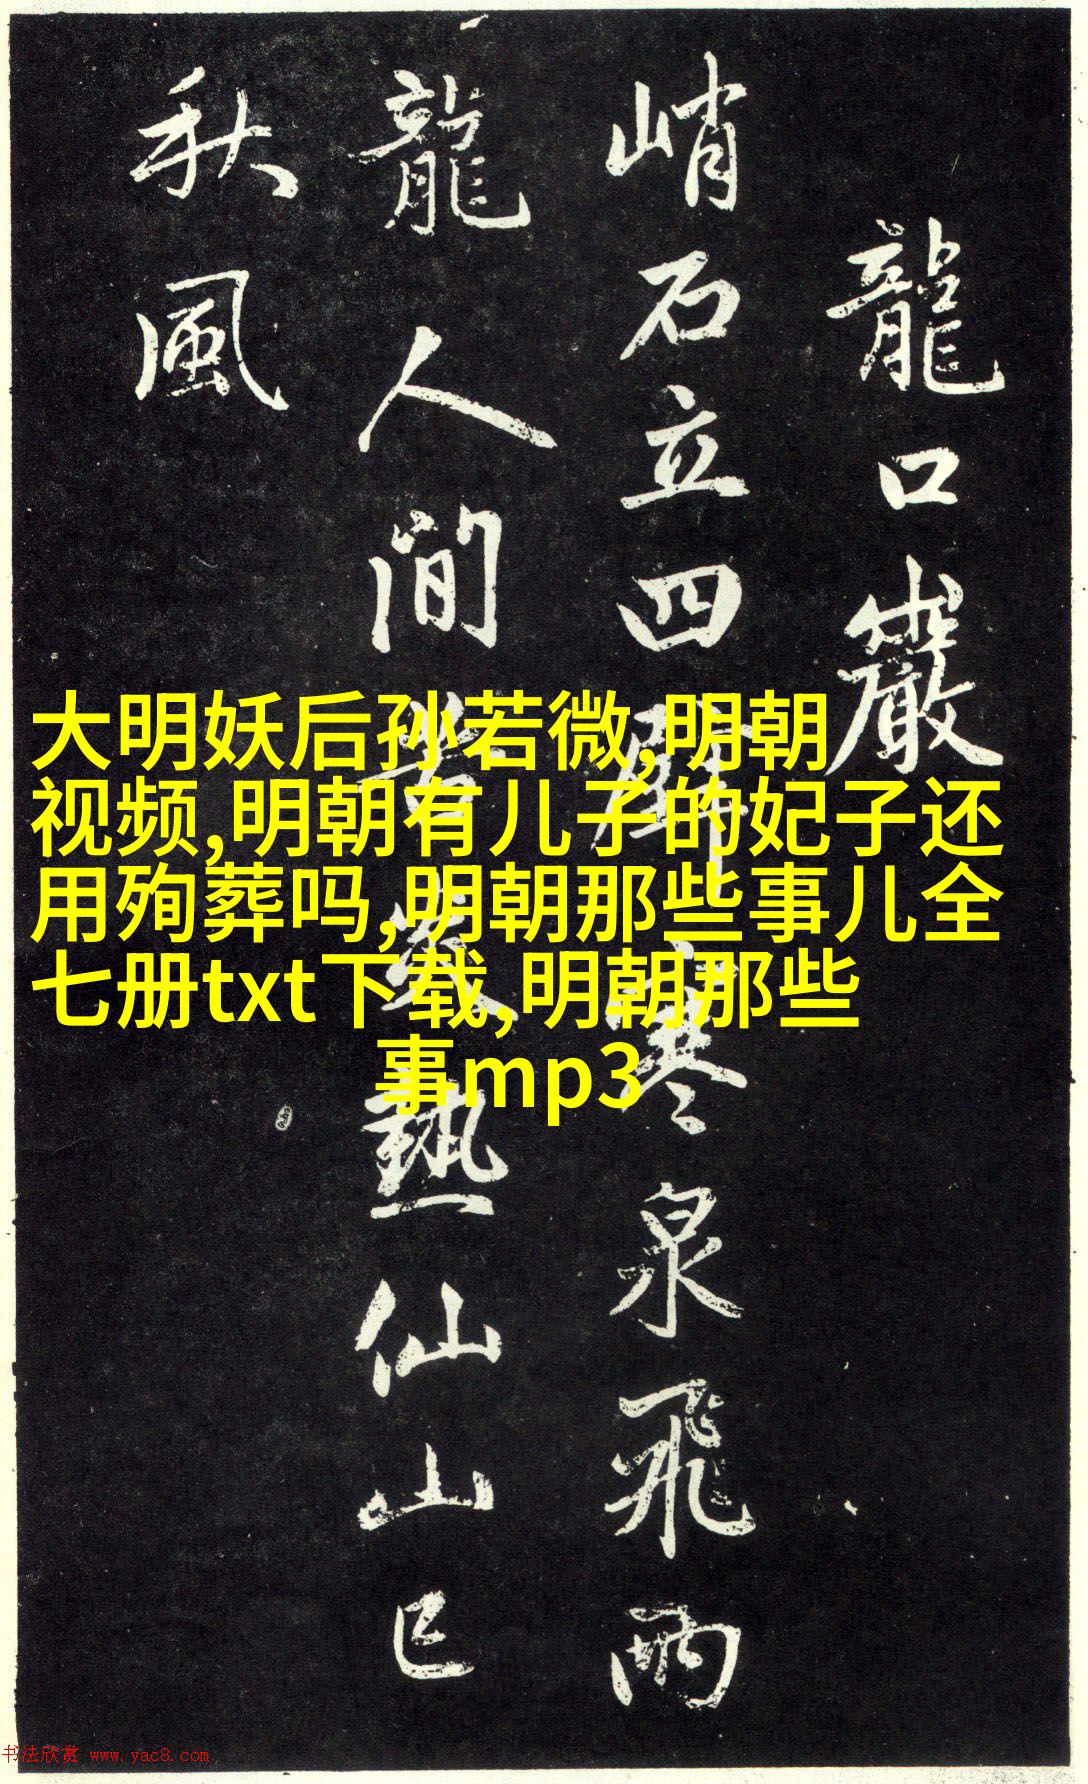 龍口巖
峭石立四壁寒泉飛兩
龍人間苦炎熱仙山已
秋風
大明妖后孙若微,明朝
视频,明朝有儿子的妃子还
用殉葬吗,明朝那些事儿全
七册txt下载,明朝那些
事mp3
书法欣赏 www.yac8.com